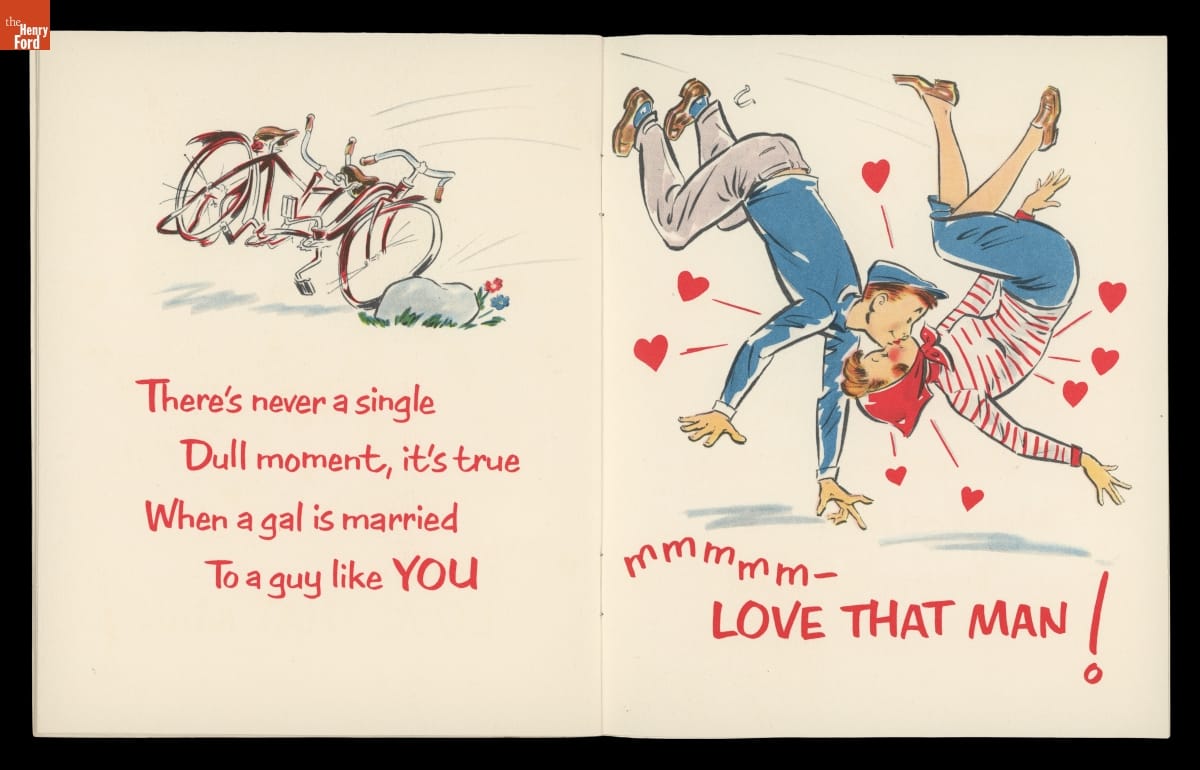 the
Henry
Ford
There's never a single
Dull moment, it's true
When a gal is married
To a guy like YOU
mmmmm–
LOVE THAT MAN!